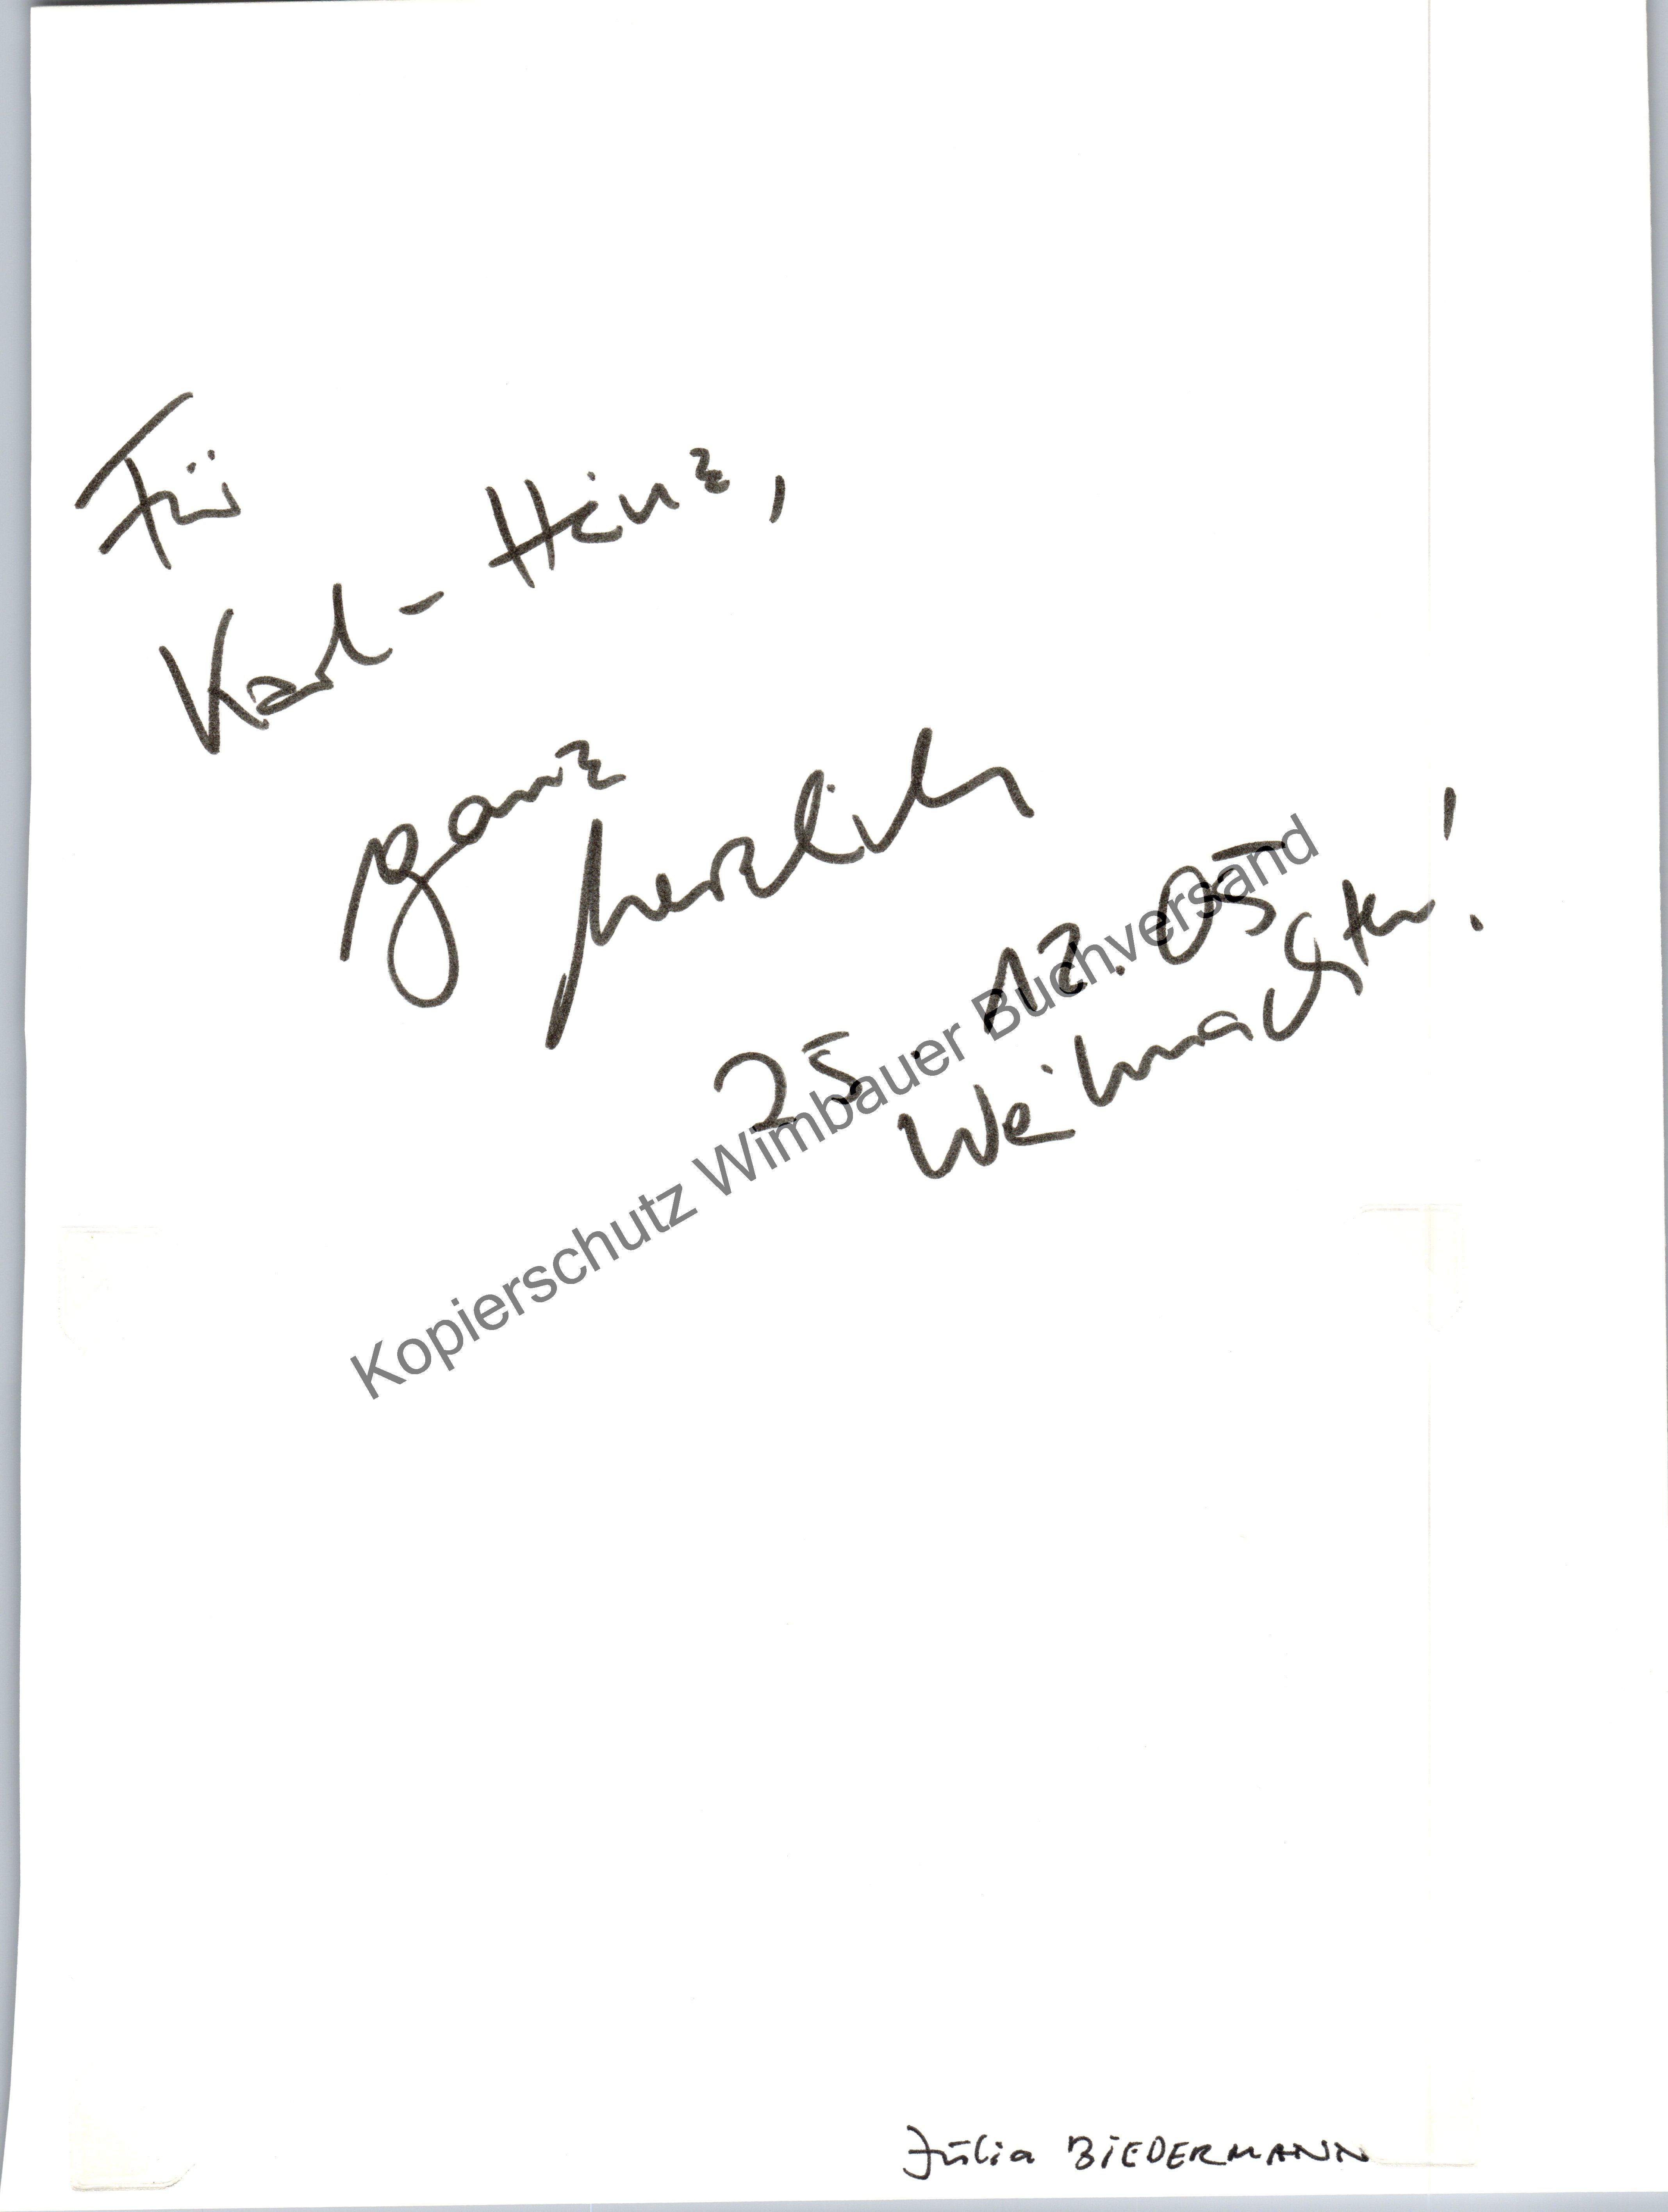 Für
Karl-Heinz,
ganz
herzlich
25. 12. 05
Weihnachten!
Kopierschutz Wimbauer Buchversand
Julia BiEDERMANN